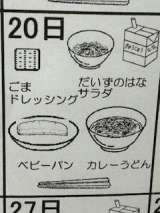 20日
ごま
ドレッシング
だいずのはな
サラダ
ベビーパン
カレーうどん
27日